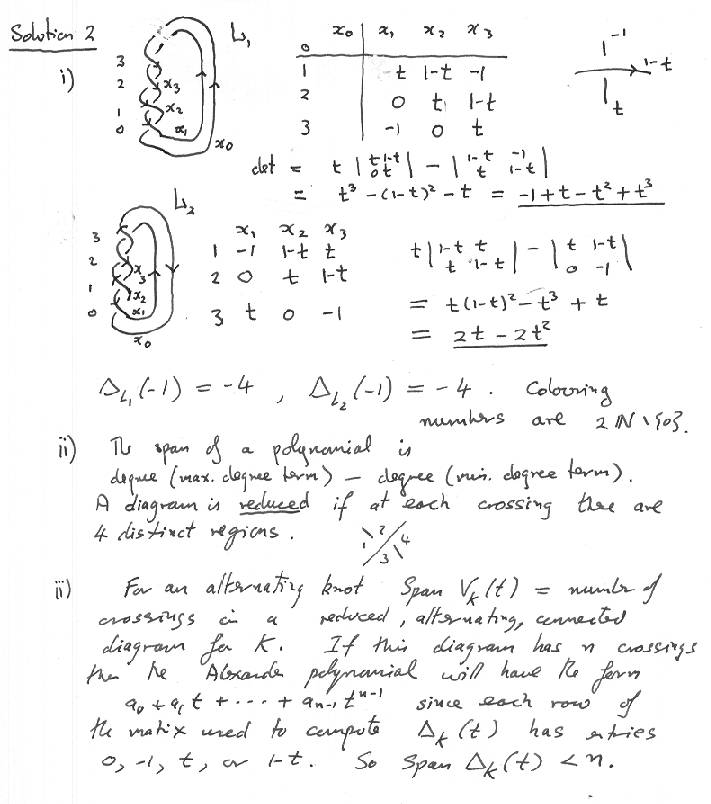 Solution 2
i)
L₁
3
2
1
0
x₃
x₂
x₁
x₀
x₀ x₁ x₂ x₃
0
1 -t 1-t -1
2 0 t 1-t
3 -1 0 t
-1
1-t
t
det = t | t 1-t 0 t | - | 1-t -1 t 1-t |
= t³ -(1-t)² - t = -1+t-t²+t³
L₂
3
2
1
0
x₃
x₂
x₁
x₀
x₁ x₂ x₃
1 -1 1-t t
2 0 t 1-t
3 t 0 -1
t | 1-t t t 1-t | - | t 1-t 0 -1 |
= t(1-t)² - t³ + t
= 2t - 2t²
Δ_L₁(-1) = -4 , Δ_L₂(-1) = -4 . Colouring
numbers are 2ℕ\{0}.
ii) The span of a polynomial is
degree (max. degree term) - degree (min. degree term).
A diagram is reduced if at each crossing there are
4 distinct regions.
1 2 3 4
ii) For an alternating knot Span V_K(t) = number of
crossings in a reduced, alternating, connected
diagram for K. If this diagram has n crossings
then the Alexander polynomial will have the form
a₀ + a₁t + ··· + aₙ₋₁tⁿ⁻¹ since each row of
the matrix used to compute Δ_K(t) has entries
0, -1, t, or 1-t. So Span Δ_K(t) < n.